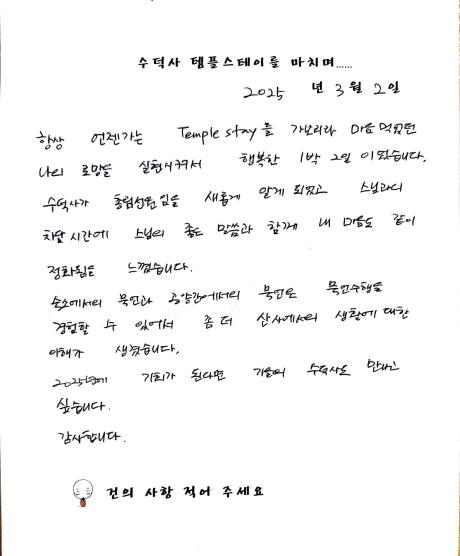 수덕사 템플스테이를 마치며......
2025 년 3 월 2 일
항상 언젠가는 Temple stay를 가보리라 마음 먹었던
나의 로망을 실현시켜서 행복한 1박 2일 이었습니다.
수덕사가 총림선원임을 새롭게 알게 되었고 스님과의
차담시간에 스님의 좋은 말씀과 함께 내 마음도 같이
정화됨을 느꼈습니다.
숙소에서의 묵언과 공양간에서의 묵언은 묵언수행을
경험할 수 있어서 좀 더 산사에서의 생활에 대한
이해가 생겼습니다.
2025년에 기회가 된다면 가을의 수덕사도 만나고
싶습니다.
감사합니다.
건의 사항 적어 주세요